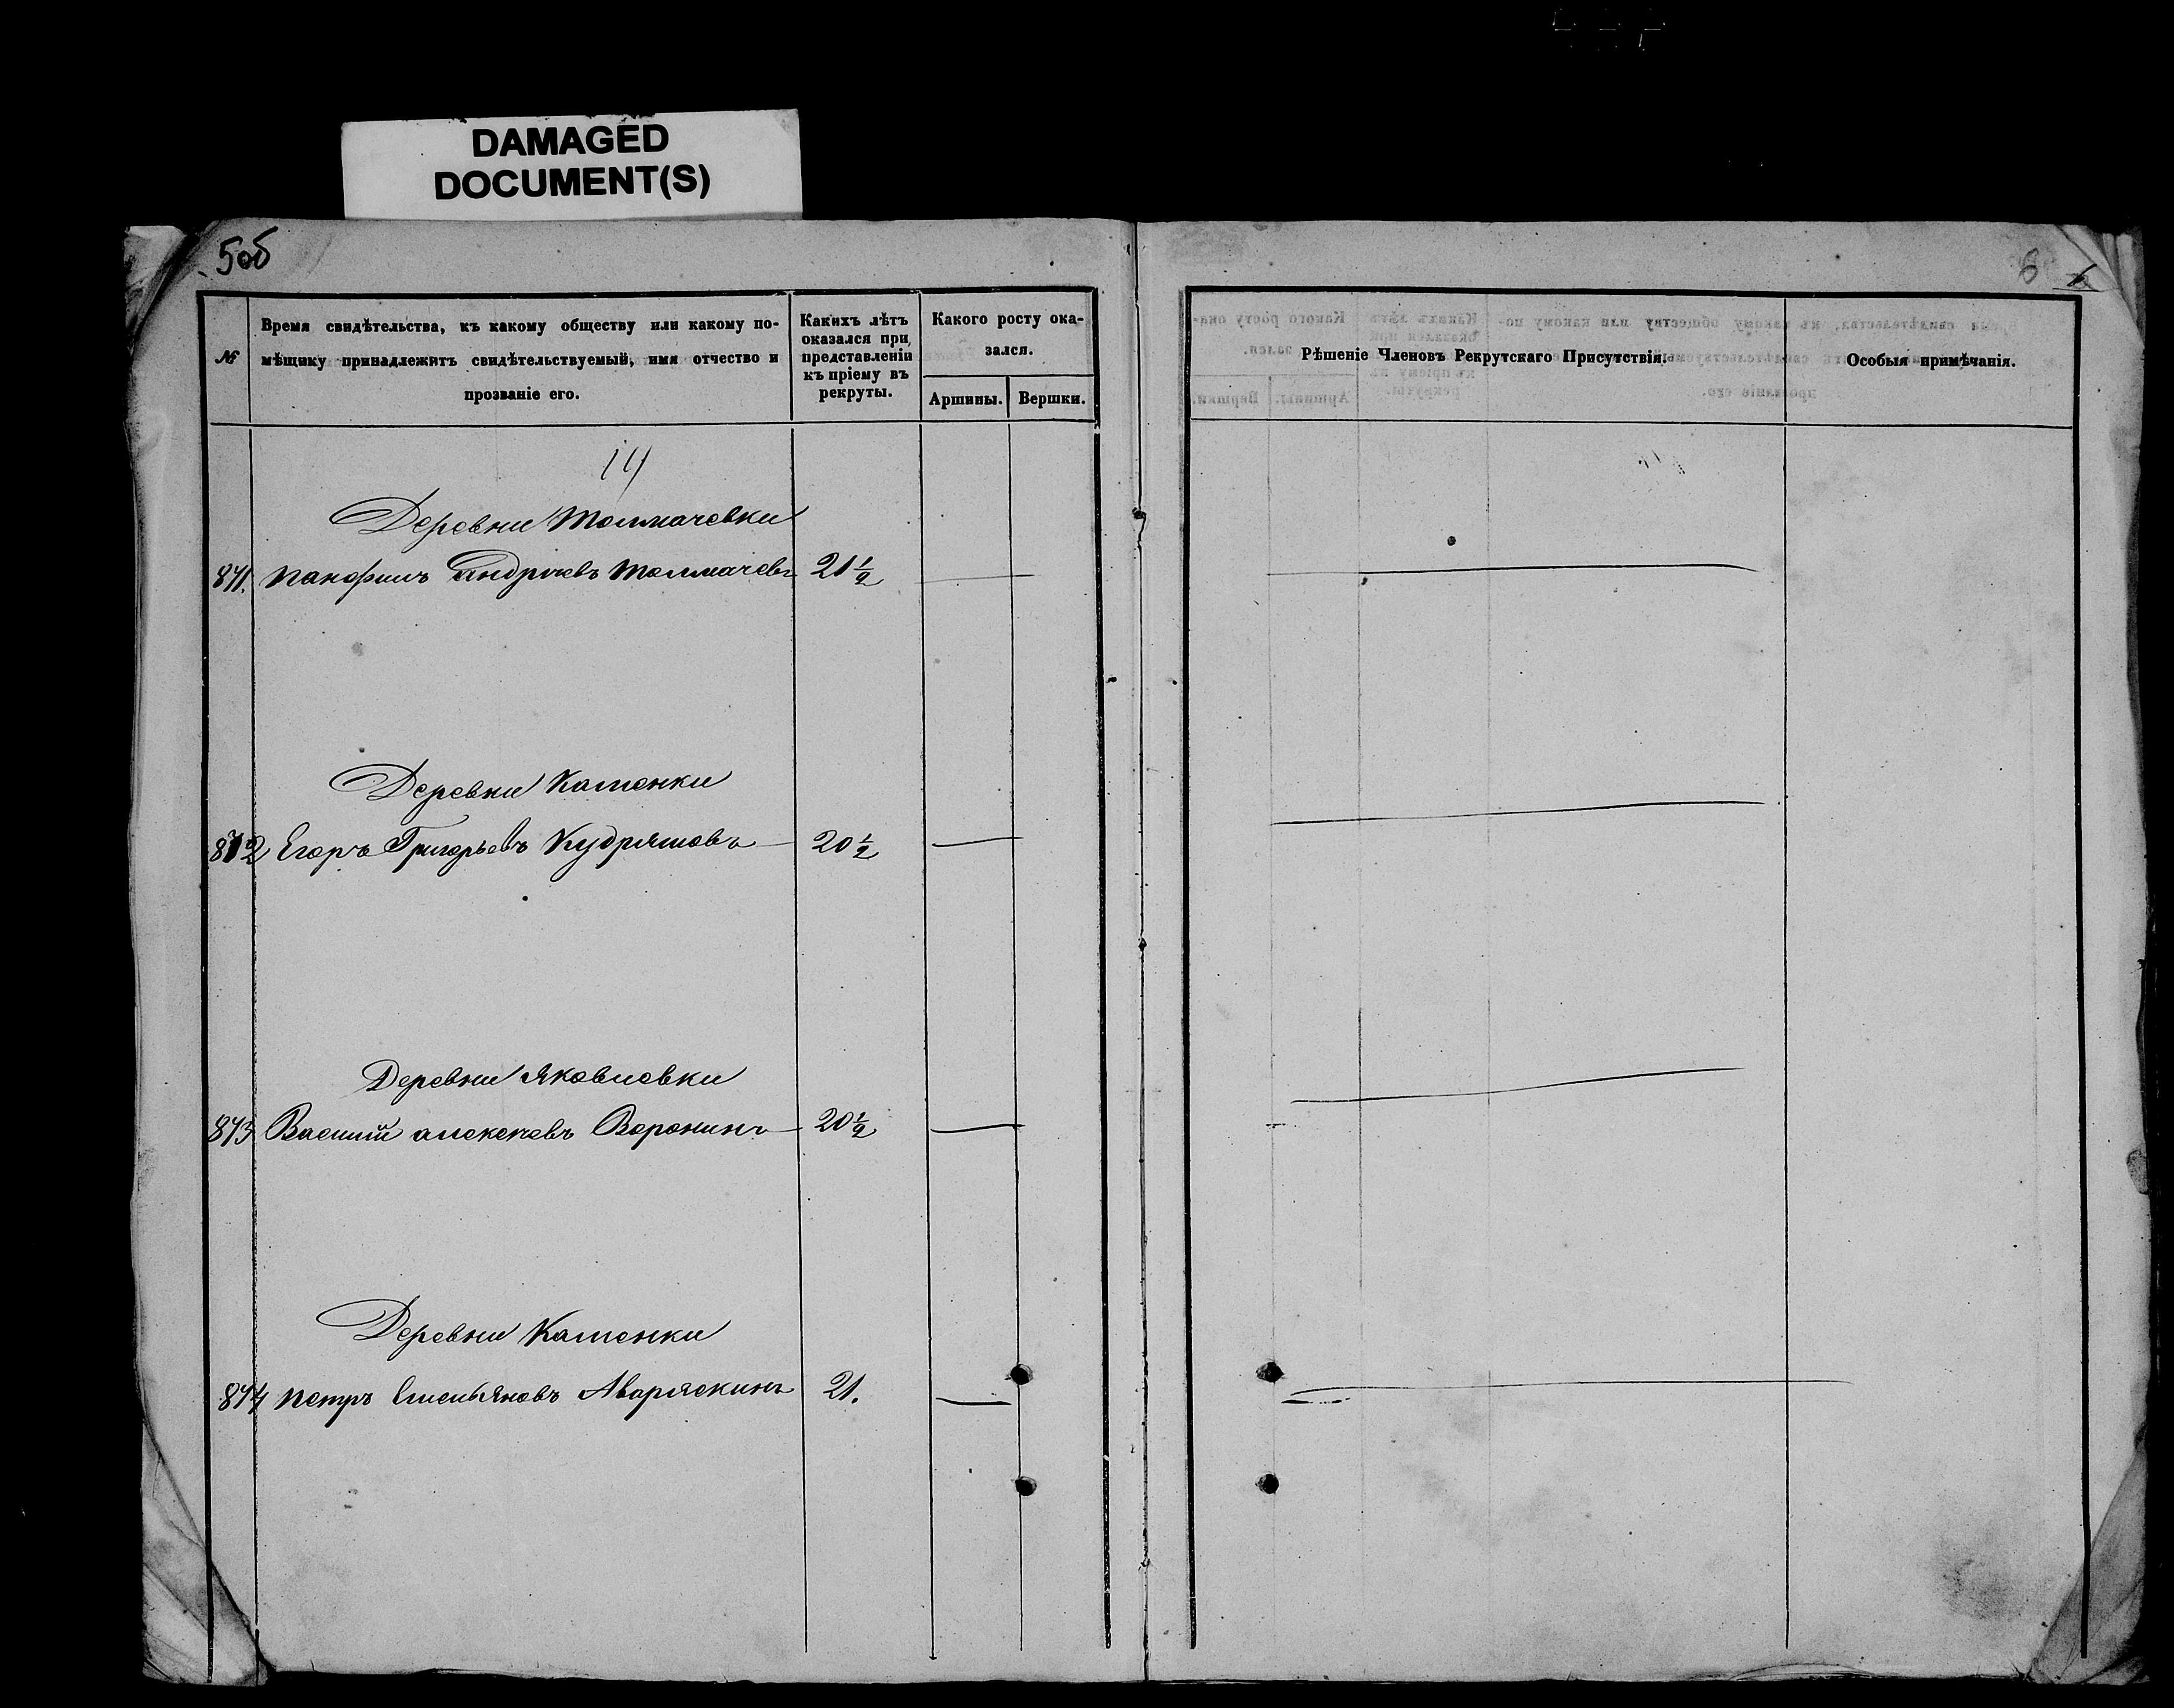 DAMAGED
DOCUMENT(S)
5об
6
№
Время свидѣтельства, къ какому обществу или какому по-
мѣщику принадлежитъ свидѣтельствуемый, имя отчество и
прозваніе его.
Какихъ лѣтъ
оказался при
представленіи
къ пріему въ
рекруты.
Какого росту ока-
зался.
Аршины.
Вершки.
Рѣшеніе Членовъ Рекрутскаго Присутствія.
Особыя примѣчанія.
Деревни Толмачевки
871. Панфилъ Андрѣевъ Толмачевъ 21 1/2
Деревни Каменки
872 Егоръ Григорьевъ Кудряшовъ 20 1/2
Деревни Яковлевки
873 Василій Алексѣевъ Воронинъ 20 1/2
Деревни Каменки
874 Петръ Емельяновъ Аваряскинъ 21.